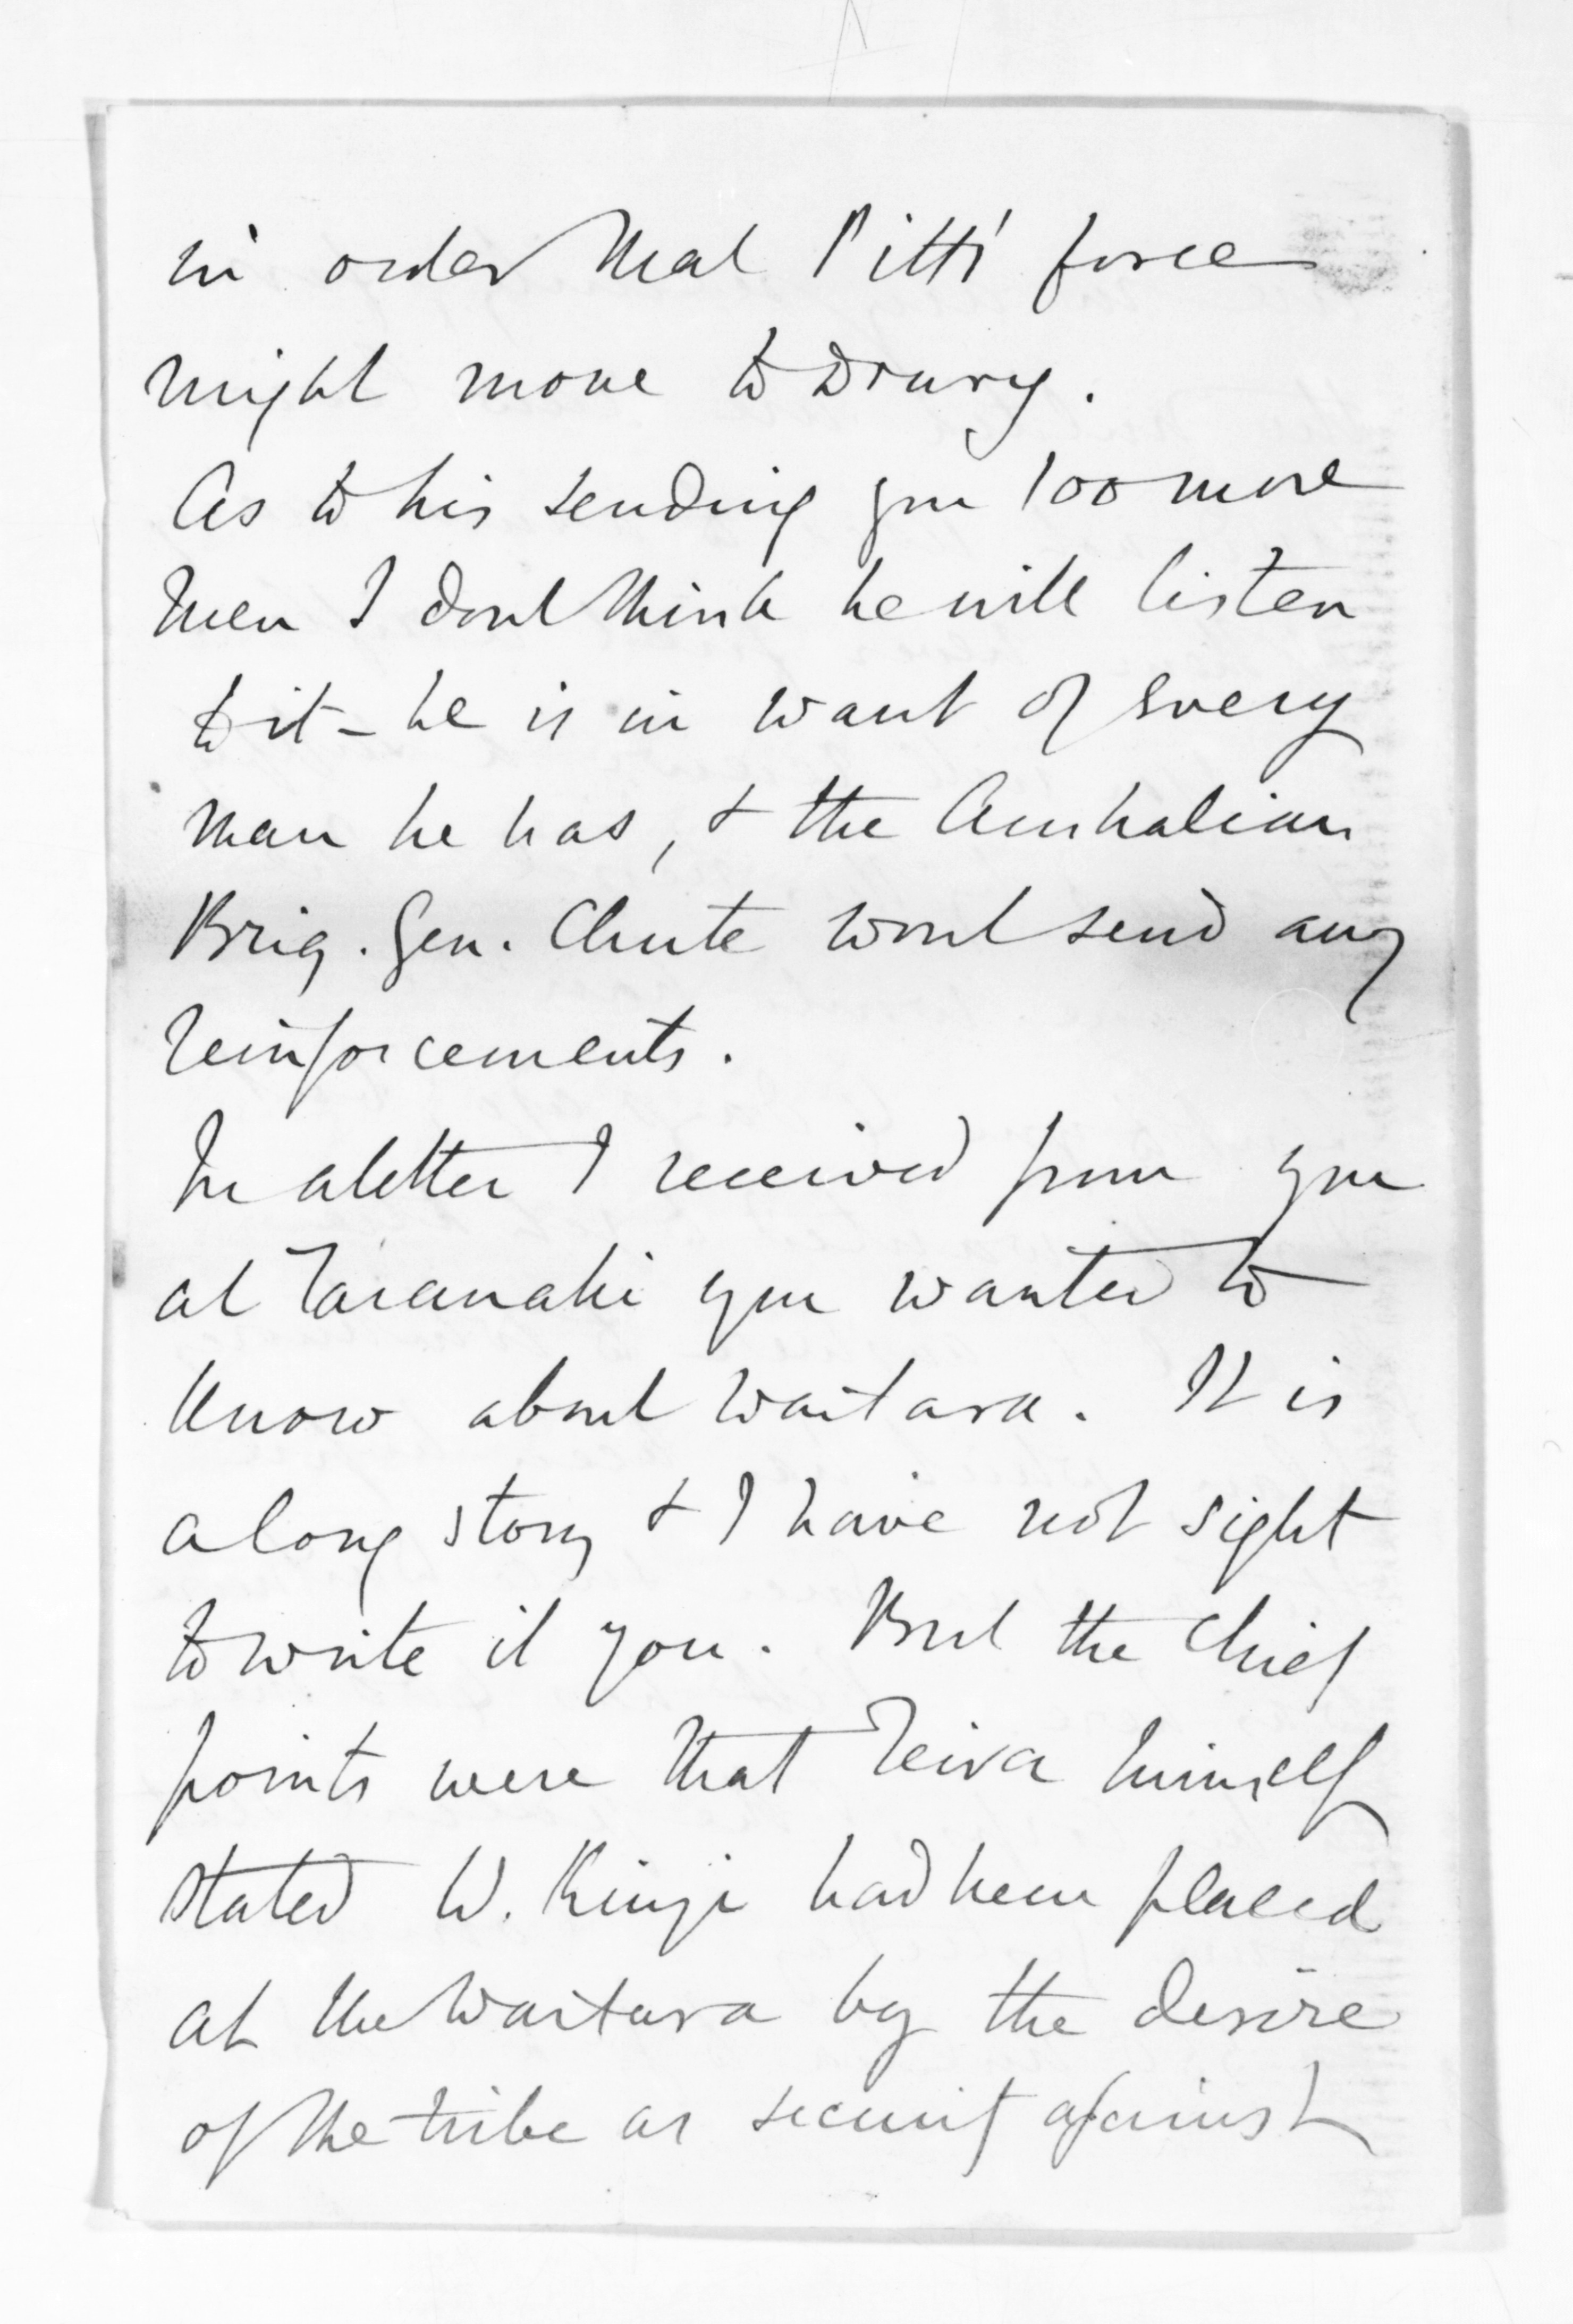 in order that Pitt's force
might move to Drury.
As to his sending you 100 more
men I dont think he will listen
to it - he is in want of every
man he has, & the Australian
Brig. Gen. Chute wont send any
reinforcements.
In a letter I received from you
at Taranaki you wanted to
know about Waitara. It is
a long story & I have not sight
to write it you. But the chief
points were that Teira himself
stated W. Kingi had been placed
at the Waitara by the desire
of the tribe as security against